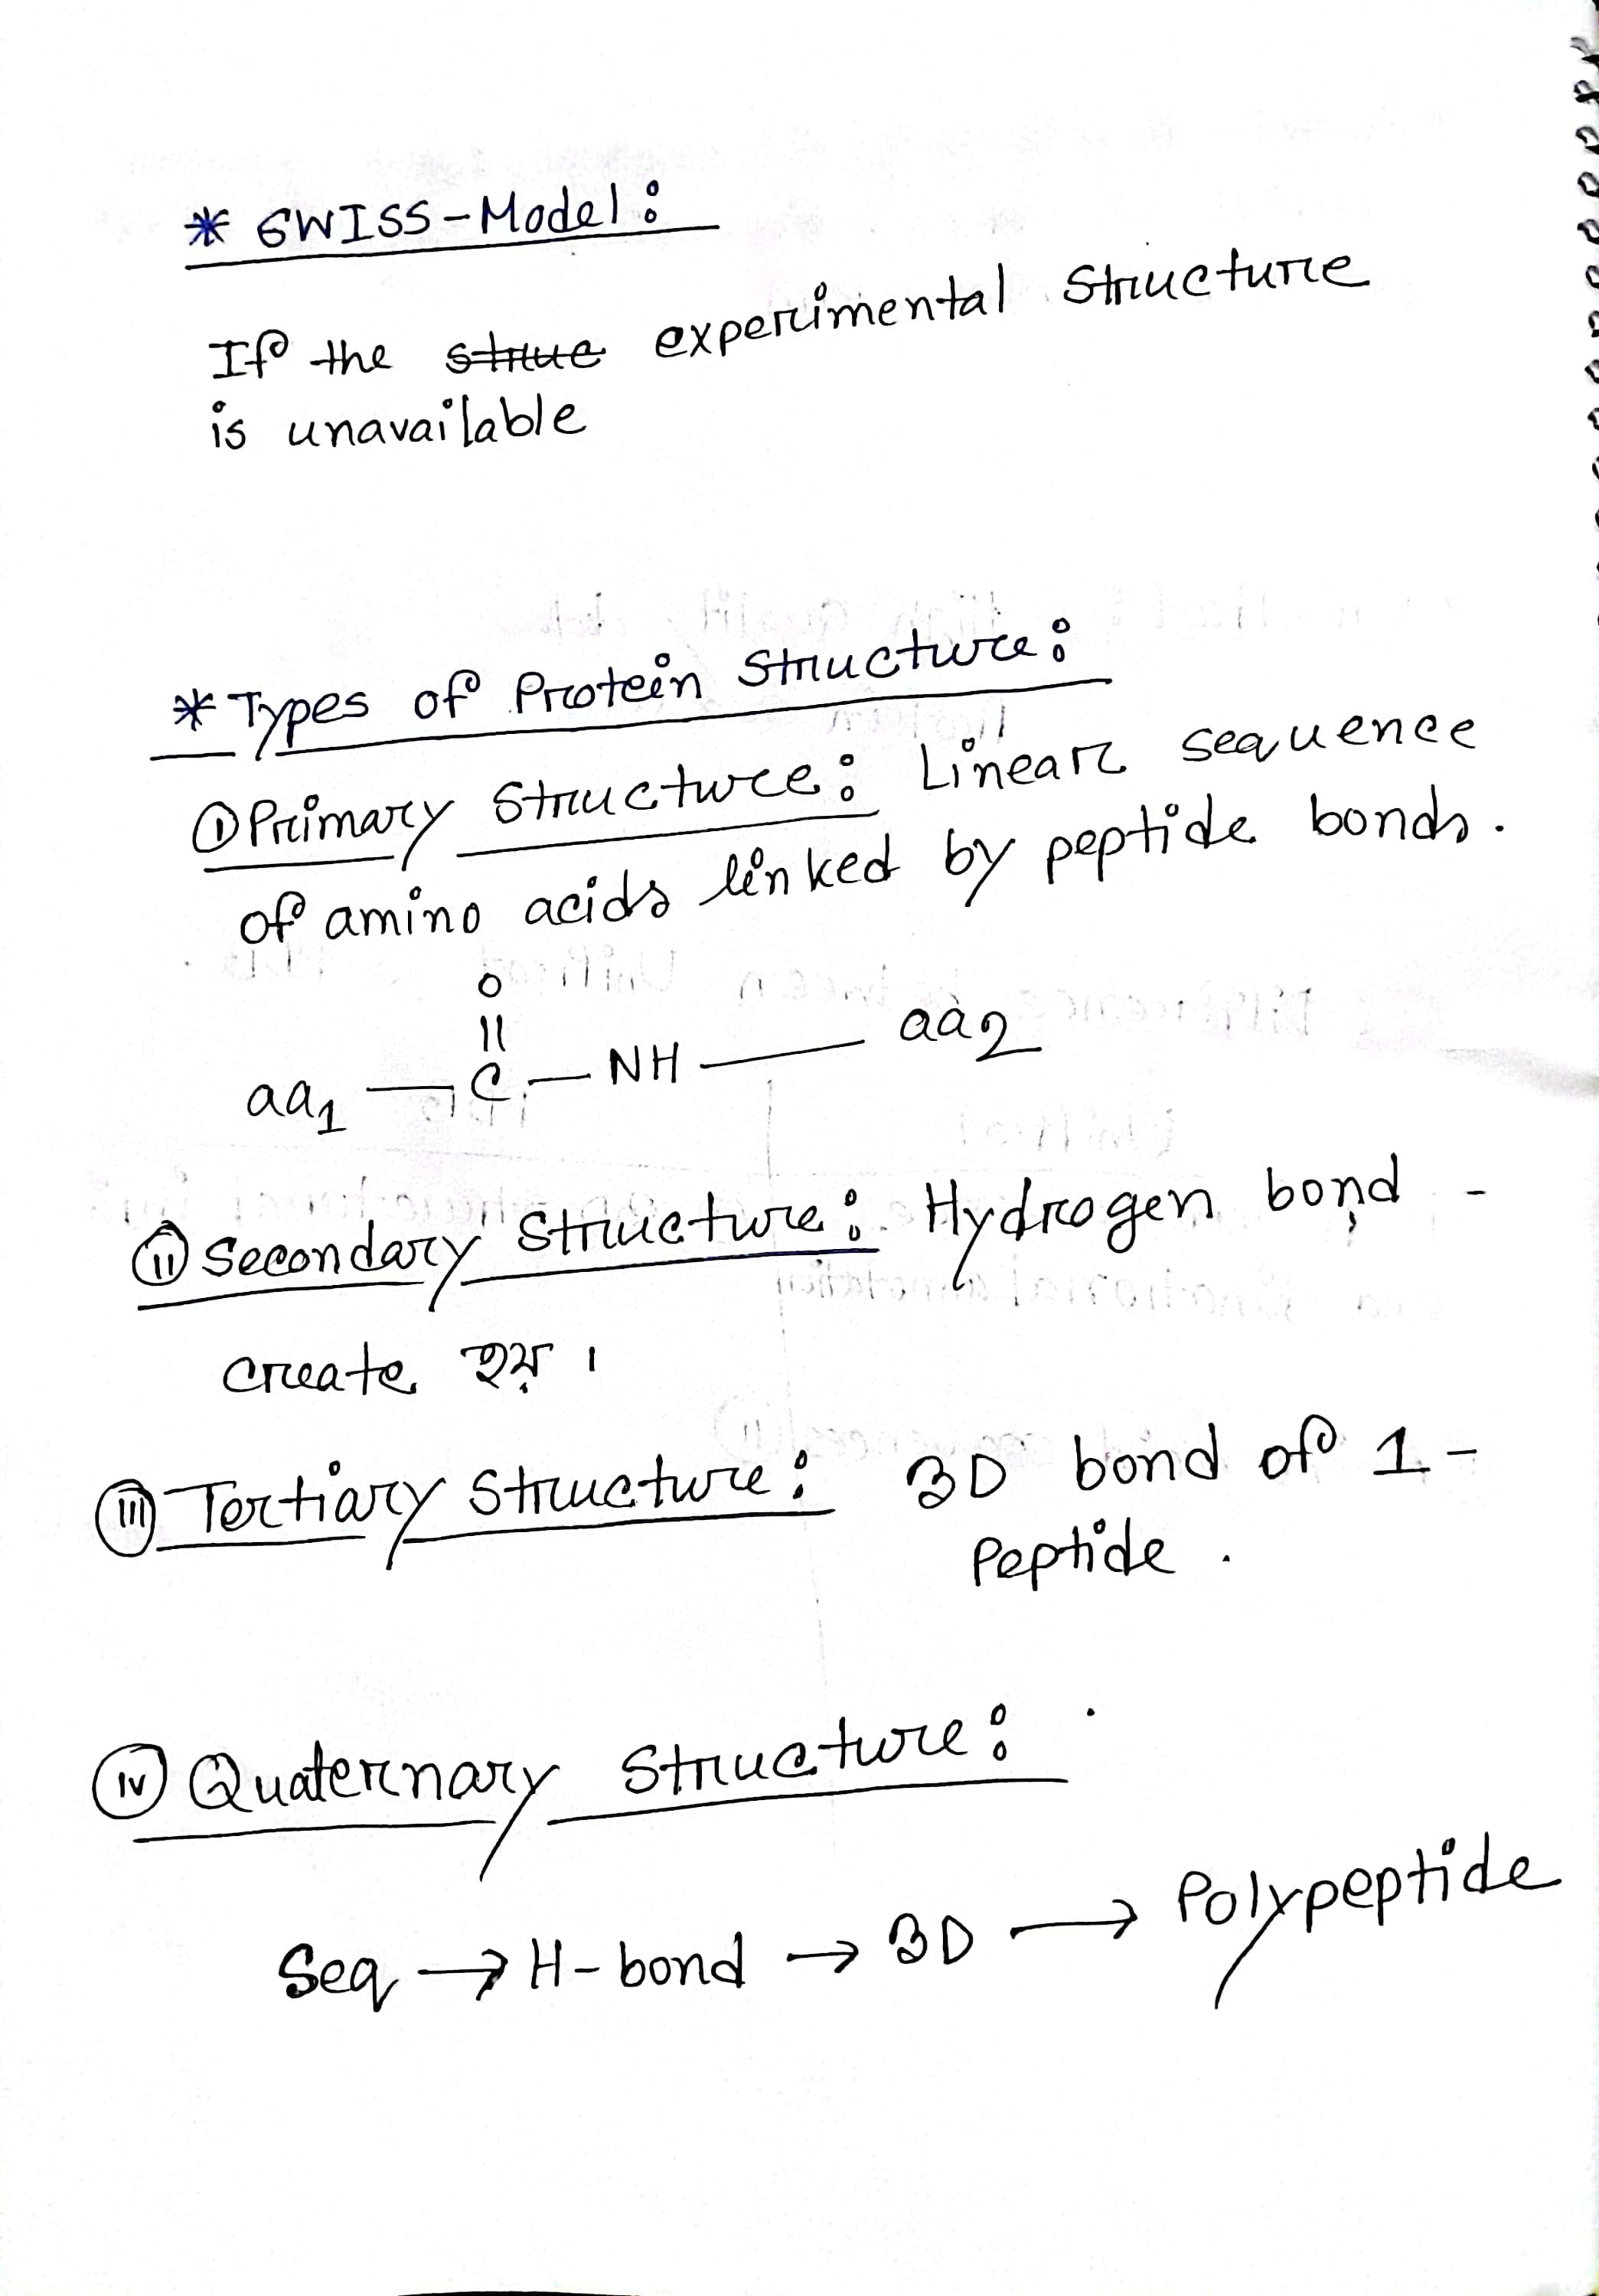 * SWISS-Model:
If the strue experimental structure
is unavailable
* Types of Protein Structure:
① Primary Structure: Linear sequence
of amino acids linked by peptide bonds.
O
||
aa1 — C — NH — aa2
ⅱ Secondary Structure: Hydrogen bond -
create হয় ।
ⅲ Tertiary Structure: 3D bond of 1 -
Peptide .
ⅳ Quaternary Structure:
Seq → H-bond → 3D → Polypeptide